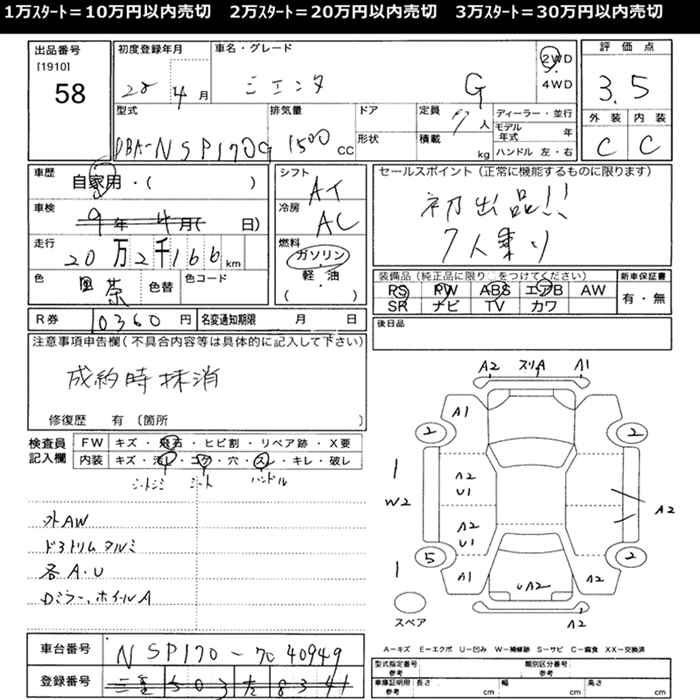 1万スタート=10万円以内売切 2万スタート=20万円以内売切 3万スタート=30万円以内売切
出品番号
[1910]
58
初度登録年月
28年4月
車名・グレード
シエンタ G
2WD
4WD
評価点
3.5
外装 内装
C C
型式
DBA-NSP170G
排気量
1500 CC
ドア
形状
定員
7人
積載
kg
ディーラー・並行
モデル年式 年
ハンドル 左・右
車歴
自家用・( )
車検
9年 4月( 日)
走行
20万2千166 km
色
黒茶
色替
色コード
シフト
AT
冷房
AC
燃料
ガソリン
軽・油
( )
セールスポイント(正常に機能するものに限ります)
初出品!!
7人乗り
装備品(純正品に限り○をつけてください)
PS PW ABS エアB AW
SR ナビ TV カワ
新車保証書
有・無
R券 10360円
名変通知期限 月 日
後日品
注意事項申告欄(不具合内容等は具体的に記入して下さい)
成約時抹消
修復歴 有〔箇所 〕
検査員
記入欄
FW キズ・飛石・ヒビ割・リペア跡・X要
内装 キズ・汚レ・コゲ・穴・スレ・キレ・破レ
シートシミ シート ハンドル
外AW
ドライムアルミ
各A.U
Dミラー、ホイルA
A2 スリA A1
A1
2 2
1
W2
A2
U1
A2
A2
U1
5 2
1
A1 UA2 A2
スペア
A2
A-キズ E-エクボ U-凹み W-補修跡 S-サビ C-腐食 XX-交換済
車台番号 NSP170-7040949
登録番号 三重503た8341
型式指定番号
参考
類別区分番号
参考
車庫証明用
参考
長さ cm
幅 cm
高さ cm